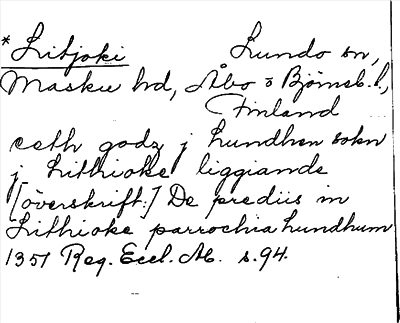 * Litjoki Lundo sn,
Masku hd, Åbo o Björneb. l.,
Finland
eeth godz j Lundhen sokn
j Lithioke liggiande
[överskrift:] De prediis in
Lithioke parrochia Lundhum
1351 Reg. Eccl. Ab. s. 94.